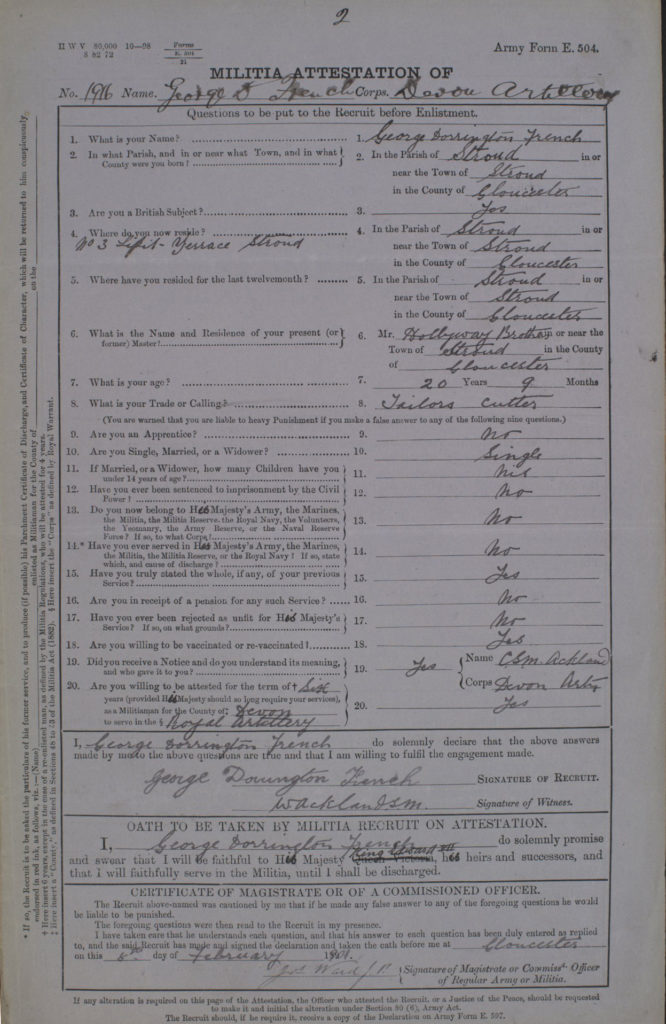 2
H W V 80,000 10—98 Forms E. 504 21 Army Form E. 504.
S 82 72
MILITIA ATTESTATION OF
No. 1916 Name. George D French Corps. Devon Artillery
Questions to be put to the Recruit before Enlistment.
1. What is your Name? 1. George Dorrington French
2. In what Parish, and in or near what Town, and in what County were you born? 2. In the Parish of Stroud in or
near the Town of Stroud
in the County of Gloucester
3. Are you a British Subject? 3. Yes
4. Where do you now reside? 4. In the Parish of Stroud in or
No 3 Terrace Stroud near the Town of Stroud
in the County of Gloucester
5. Where have you resided for the last twelvemonth? 5. In the Parish of Stroud in or
near the Town of Stroud
in the County of Gloucester
6. What is the Name and Residence of your present (or former) Master? 6. Mr. Hollyway Brothers in or near the
Town of Stroud in the County
of Gloucester
7. What is your age? 7. 20 Years 9 Months
8. What is your Trade or Calling? 8. Tailors Cutter
(You are warned that you are liable to heavy Punishment if you make a false answer to any of the following nine questions.)
9. Are you an Apprentice? 9. No
10. Are you Single, Married, or a Widower? 10. Single
11. If Married, or a Widower, how many Children have you under 14 years of age? 11. Nil
12. Have you ever been sentenced to imprisonment by the Civil Power? 12. No
13. Do you now belong to His Majesty's Army, the Marines,
the Militia, the Militia Reserve, the Royal Navy, the Volunteers,
the Yeomanry, the Army Reserve, or the Naval Reserve
Force? If so, to what Corps? 13. No
14.* Have you ever served in His Majesty's Army, the Marines,
the Militia, the Militia Reserve, or the Royal Navy? If so, state
which, and cause of discharge? 14. No
15. Have you truly stated the whole, if any, of your previous Service? 15. Yes
16. Are you in receipt of a pension for any such Service? 16. No
17. Have you ever been rejected as unfit for His Majesty's Service? If so, on what grounds? 17. No
18. Are you willing to be vaccinated or re-vaccinated? 18. Yes
19. Did you receive a Notice and do you understand its meaning, and who gave it to you? 19. Yes Name C.S.M. Ackland
Corps Devon Arty
20. Are you willing to be attested for the term of † Six
years (provided His Majesty should so long require your services),
as a Militiaman for the County of ‡ Devon
to serve in the § Royal Artillery 20. Yes
I, George Dorrington French do solemnly declare that the above answers
made by me to the above questions are true and that I am willing to fulfil the engagement made.
George Dorrington French SIGNATURE OF RECRUIT.
W Ackland S.M. Signature of Witness.
OATH TO BE TAKEN BY MILITIA RECRUIT ON ATTESTATION.
I, George Dorrington French do solemnly promise
and swear that I will be faithful to His Majesty King Edward VII Queen Victoria, his heirs and successors, and
that I will faithfully serve in the Militia, until I shall be discharged.
CERTIFICATE OF MAGISTRATE OR OF A COMMISSIONED OFFICER.
The Recruit above-named was cautioned by me that if he made any false answer to any of the foregoing questions he would
be liable to be punished.
The foregoing questions were then read to the Recruit in my presence.
I have taken care that he understands each question, and that his answer to each question has been duly entered as replied
to, and the said Recruit has made and signed the declaration and taken the oath before me at Gloucester
on this 8th day of February 1901.
Jos Ward J P Signature of Magistrate or Commissd. Officer
of Regular Army or Militia.
If any alteration is required on this page of the Attestation, the Officer who attested the Recruit, or a Justice of the Peace, should be requested
to make it and initial the alteration under Section 80 (6), Army Act.
The Recruit should, if he require it, receive a copy of the Declaration on Army Form E. 507.
* If so, the Recruit is to be asked the particulars of his former service, and to produce (if possible) his Parchment Certificate of Discharge, and Certificate of Character, which will be returned to him conspicuously,
endorsed in red ink, as follows, viz.:—(Name) enlisted as Militiaman for the County of on the
† Here insert 6 years, except in the case of a re-enlisted man, as defined by the Militia Regulations, who will be attested for 4 years.
‡ Here insert a "County," as defined in Sections 48 to 53 of the Militia Act (1882). § Here insert the "Corps" as defined by Royal Warrant.